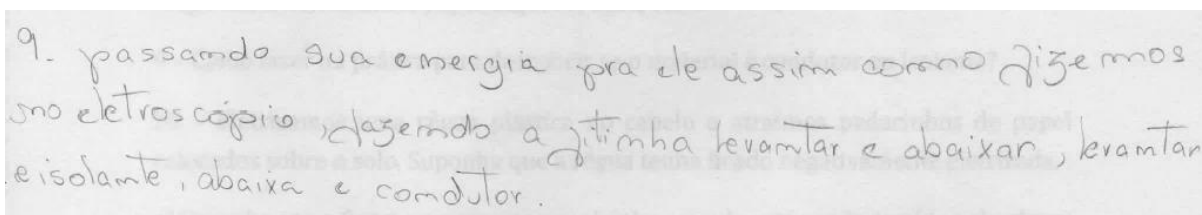 9. passando sua energia pra ele assim como fizemos
no eletroscópio, fazendo a fitinha levantar e abaixar, levantar
e isolante, abaixa e condutor.